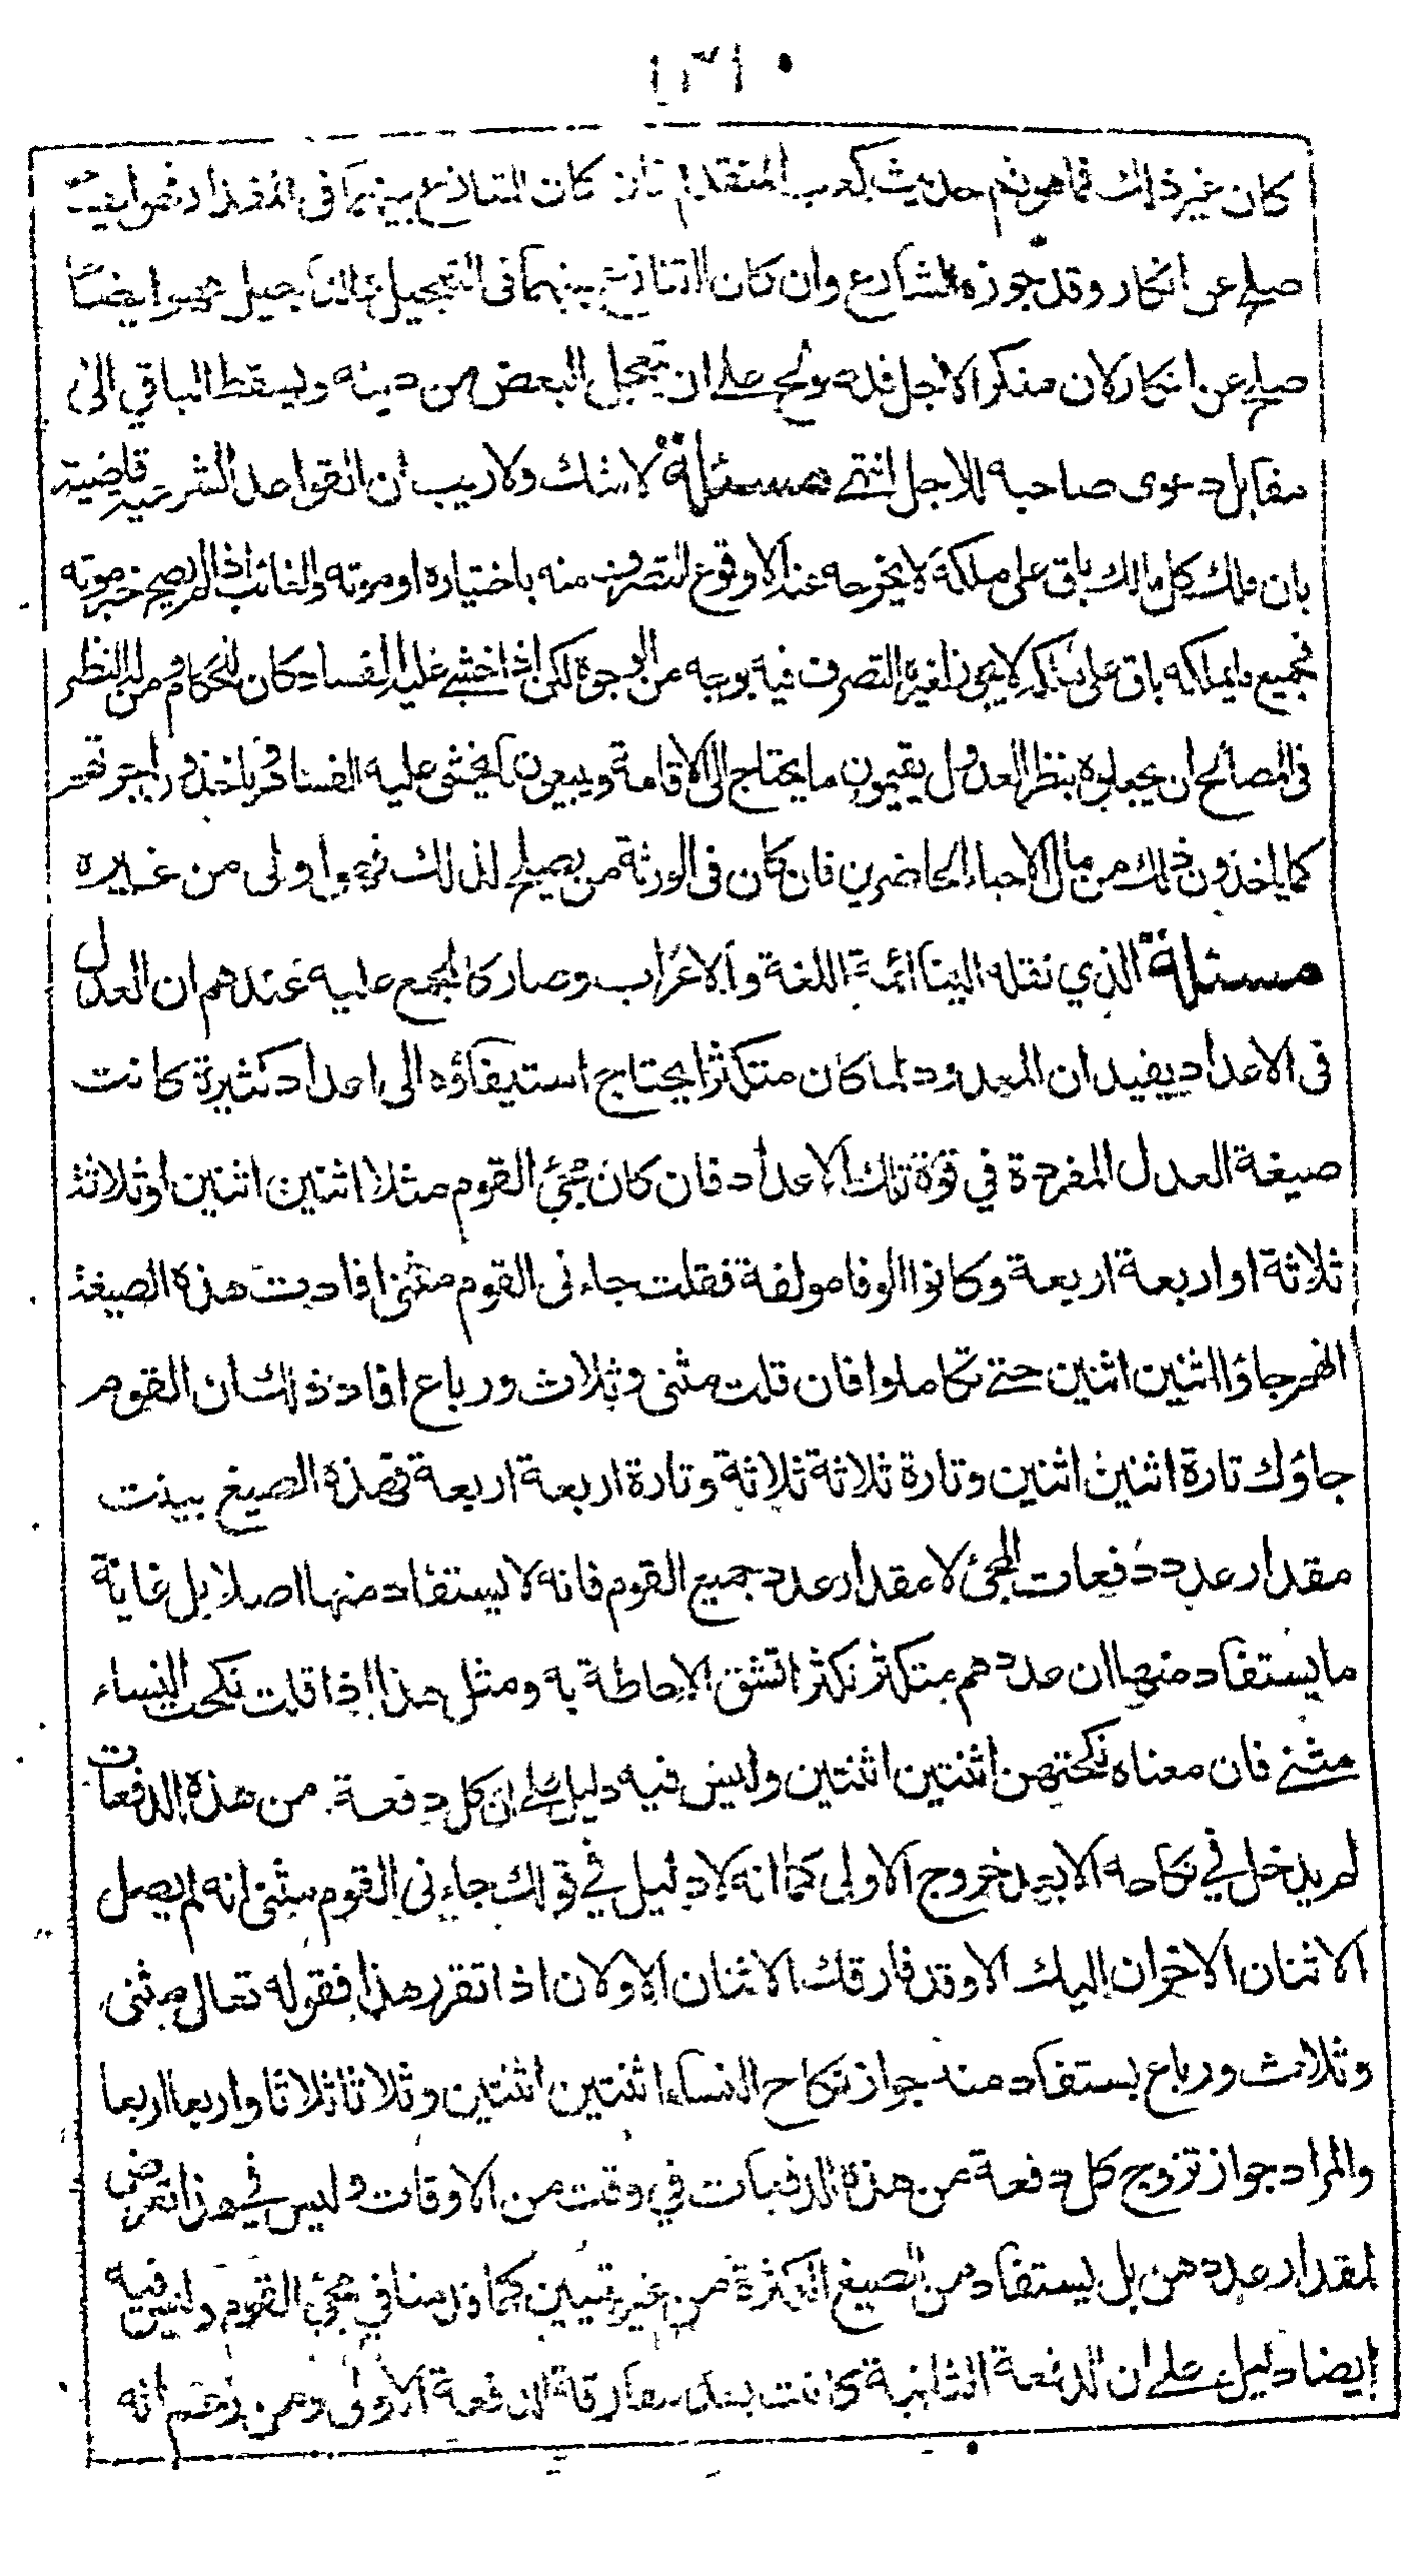 كان غير ذلك فما هو في حديث كعب المتقدم فان كان التنازع بينهما في المقدار فهو ايضا
صلح عن انكار وقد جوزه الشارع وان كان التنازع بينهما في التعجيل والتاجيل فهو ايضا
صلح عن انكار لان منكر الاجل قد صولح على ان يتعجل البعض من دينه ويسقط الباقي الى
مقابل دعوى صاحبه للاجل انتهى مسئلة لا شك ولا ريب ان القواعد الشرعية قاضية
بان ملك كل مالك باق على ملكه لا يخرجه عنه الا وقوع التصرف منه باختياره او موته والغائب اذا لم يصح خبر موته
فجميع ما يملكه باق على ملكه لا يجوز لغيره التصرف فيه بوجه من الوجوه لكن اذا خشي عليه الفساد كان للحكام ومن له النظر
في المصالح ان يجعلوه بنظر العدول يقيمون ما يحتاج الى الاقامة ويبيعون ما يخشى عليه الفساد وياخذون اجرتهم
كما ياخذون ذلك من مال الاحياء الحاضرين فان كان في الورثة من يصلح لذلك فهو اولى من غيره
مسئلة الذي نقله الينا ائمة اللغة والاعراب وصار كالمجمع عليه عندهم ان العدل
في الاعداد يفيد ان المعدود لما كان متكثرا يحتاج استيفاؤه الى اعداد كثيرة كانت
صيغة العدل المفردة في قوة تلك الاعداد فان كان مجئ القوم مثلا اثنين اثنين او ثلاثة
ثلاثة او اربعة اربعة وكانوا الوفا مولفة فقلت جاءني القوم مثنى افادت هذه الصيغة
انهم جاؤا اثنين اثنين حتى تكاملوا فان قلت مثنى وثلاث ورباع افاد ذلك ان القوم
جاؤك تارة اثنين اثنين وتارة ثلاثة ثلاثة وتارة اربعة اربعة فهذه الصيغ بينت
مقدار عدد دفعات المجئ لا مقدار عدد جميع القوم فانه لا يستفاد منها اصلا بل غاية
ما يستفاد منها ان عددهم متكثر تكثرا تشق الاحاطة به ومثل هذا اذا قلت نكحت النساء
مثنى فان معناه نكحتهن اثنتين اثنتين وليس فيه دليل على ان كل دفعة من هذه الدفعات
لم يدخل في نكاحه الا بعد خروج الاولى كما انه لا دليل في قولك جاءني القوم مثنى انه لم يصل
الاثنان الاخران اليك الا وقد فارقك الاثنان الاولان اذا تقرر هذا فقوله تعالى مثنى
وثلاث ورباع يستفاد منه جواز نكاح النساء اثنتين اثنتين وثلاثا ثلاثا واربعا اربعا
والمراد جواز تزوج كل دفعة من هذه الدفعات في وقت من الاوقات وليس في هذا تعرض
لمقدار عددهن بل يستفاد من الصيغ الكثرة من غير تعيين كما قدمنا في مجئ القوم وليس فيه
ايضا دليل على ان الدفعة الثانية كانت بعد مفارقة الدفعة الاولى ومن زعم انه